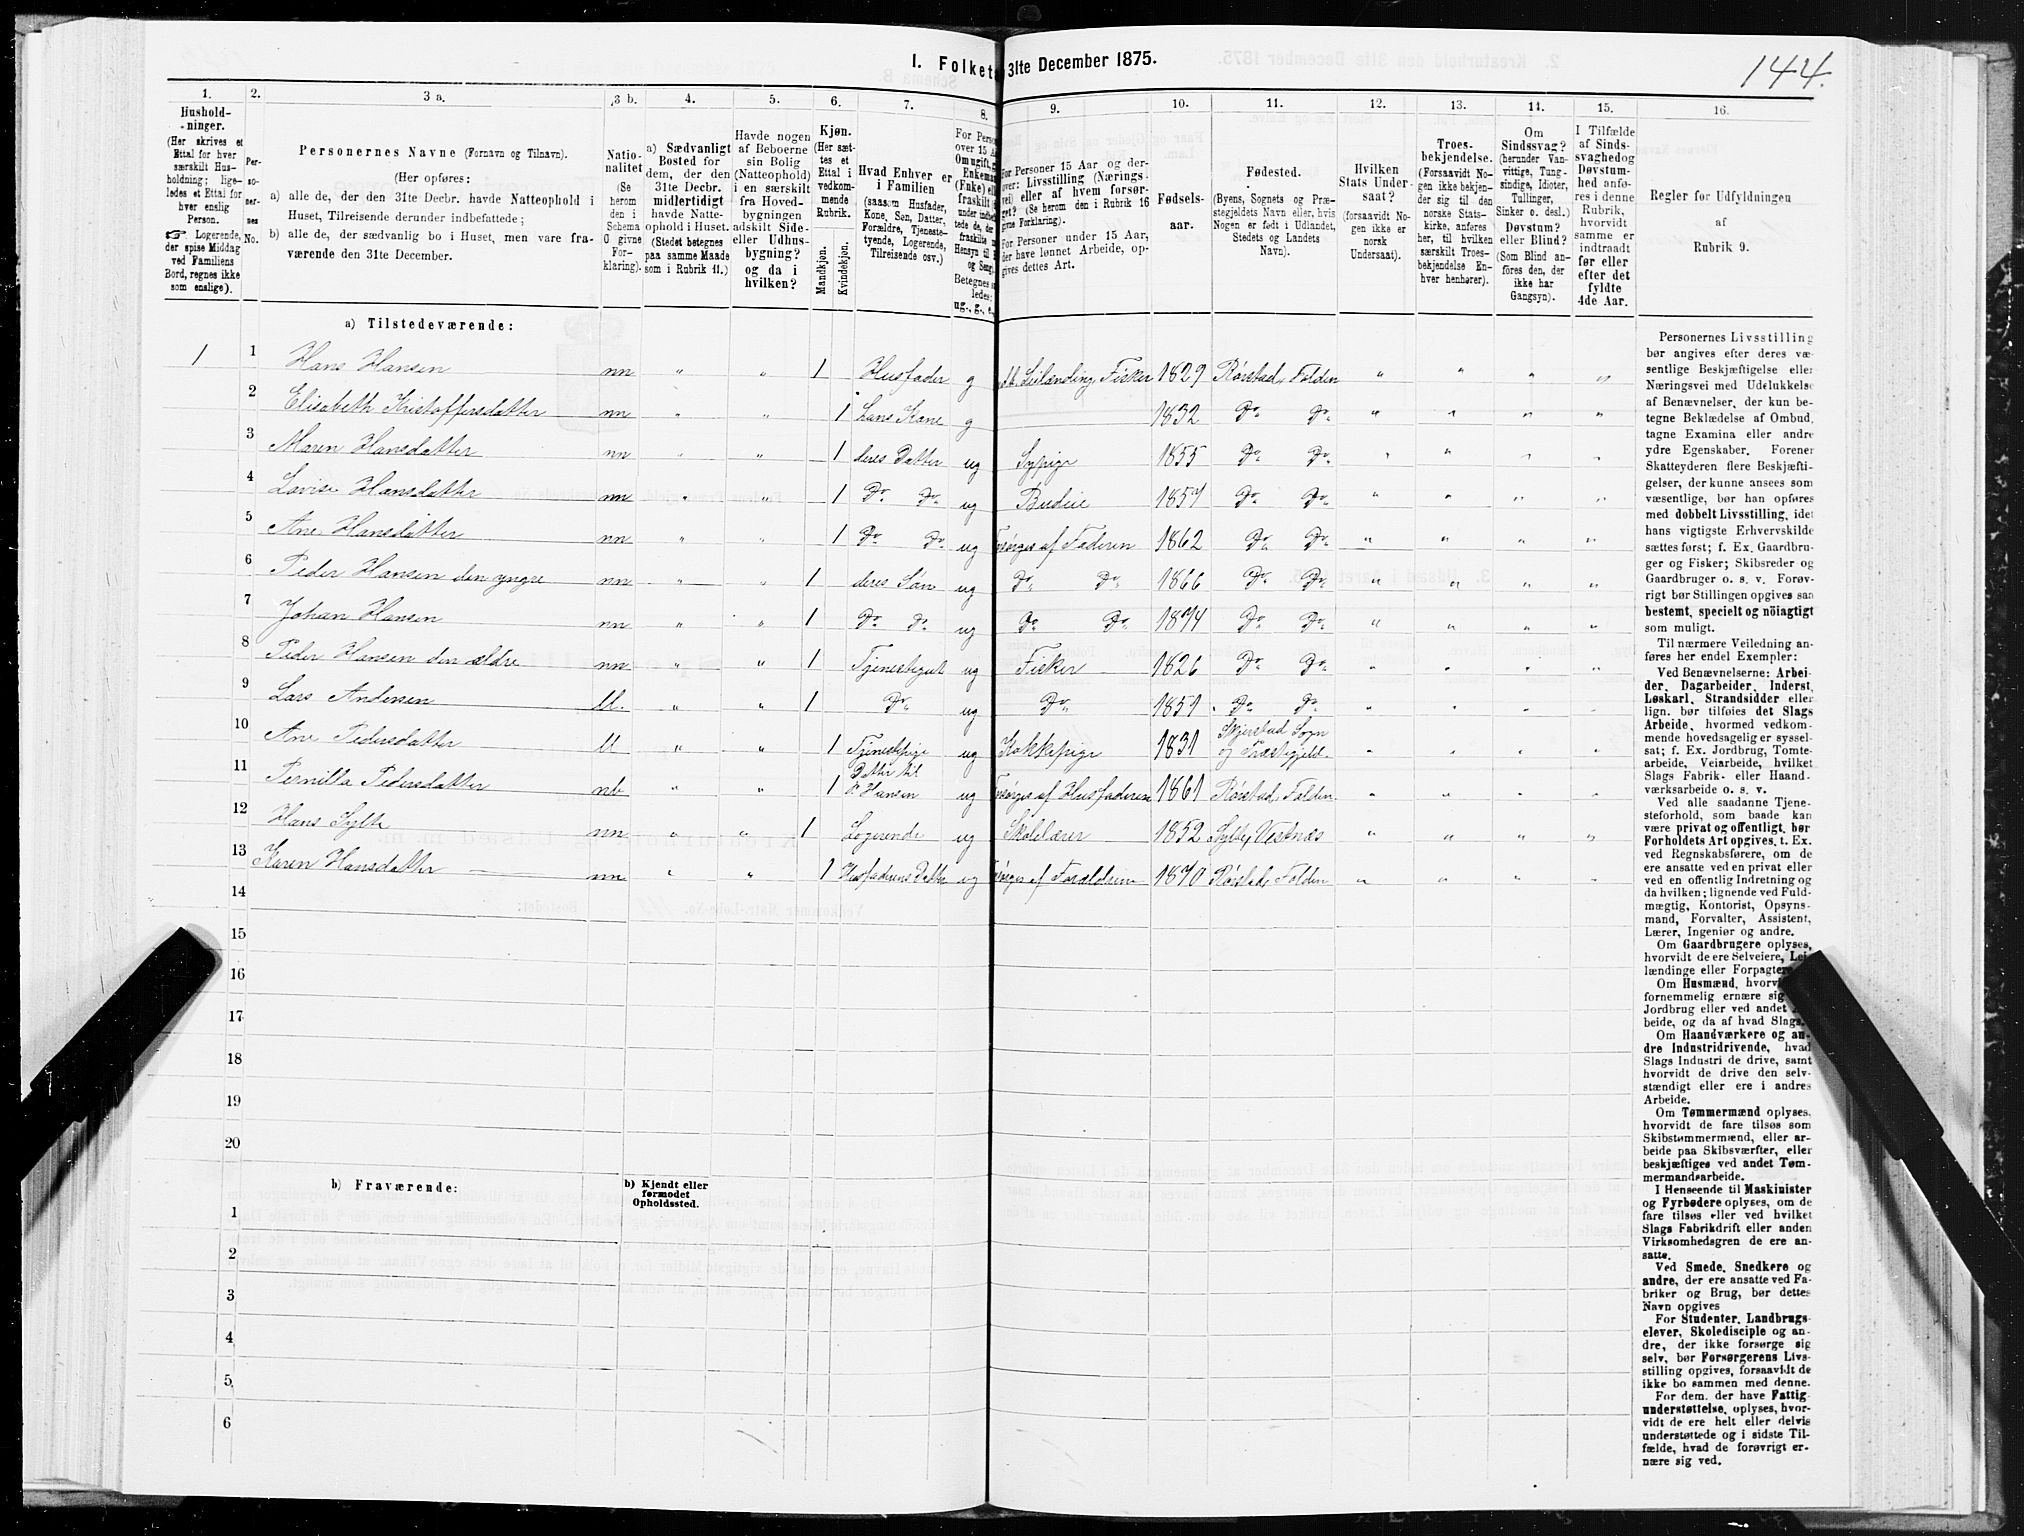 144.
I. Folket 31te December 1875.
1. 2. 3 a. 3 b. 4. 5. 6. 7. 8. 9. 10. 11. 12. 13. 14. 15. 16.
Hushold-
ninger.
(Her skrives et
Ettal for hver
særskilt Hus-
holdning; lige-
ledes et Ettal for
hver enslig
Person.
☞ Logerende,
der spise Middag
ved Familiens
Bord, regnes ikke
som enslige).
Per-
so-
ner-
nes
No.
Personernes Navne (Fornavn og Tilnavn).
(Her opføres:
a) alle de, der den 31te Decbr. havde Natteophold i
Huset, Tilreisende derunder indbefattede;
b) alle de, der sædvanlig bo i Huset, men vare fra-
værende den 31te December.
Natio-
nalitet
(Se
herom
den i
Schema
G givne
For-
klaring).
a) Sædvanligt
Bosted for
dem, der den
31te Decbr.
midlertidigt
havde Natte-
ophold i Huset.
(Stedet betegnes
paa samme Maade
som i Rubrik 11.)
Havde nogen
af Beboerne
sin Bolig
(Natteophold)
i en særskilt
fra Hoved-
bygningen
adskilt Side-
eller Udhus-
bygning?
og da i
hvilken?
Kjøn.
(Her sæt-
tes et
Ettal i
vedkom-
mende
Rubrik.
Mandkjøn.
Kvindekjøn.
Hvad Enhver er
i Familien
(saasom Husfader,
Kone, Søn, Datter,
Forældre, Tjeneste-
tyende, Logerende,
Tilreisende osv.)
For Perso
over 15 A
Om ugift,
Enkema
(Enke) el
fraskilt
ug., g., e.
For Personer 15 Aar og der-
over: Livsstilling (Nærings-
vei) eller af hvem forsør-
get? (Se herom den i Rubrik 16
givne Forklaring.)
For Personer under 15 Aar,
der have lønnet Arbeide, op-
gives dettes Art.
Fødsels-
aar.
Fødested.
(Byens, Sognets og Præ-
stegjeldets Navn eller, hvis
Nogen er født i Udlandet,
Stedets og Landets
Navn).
Hvilken
Stats Under-
saat?
(forsaavidt No-
gen ikke er
norsk
Undersaat).
Troes-
bekjendelse.
(Forsaavidt No-
gen ikke bekjen-
der sig til den
norske Stats-
kirke, anføres
her, til hvilken
særskilt Troes-
bekjendelse En-
hver henhører).
Om
Sindssvag?
(herunder Van-
vittige, Tung-
sindige, Idioter,
Tullinger,
Sinker o. desl.)
Døvstum?
eller Blind?
(Som Blind an-
føres den, der
ikke har
Gangsyn).
I Tilfælde
af Sinds-
svaghed og
Døvstum-
hed anfø-
res i denne
Rubrik,
hvorvidt
samme er
indtraadt
før eller
efter det
fyldte
4de Aar.
Regler for Udfyldningen
af
Rubrik 9.
a) Tilstedeværende:
1 1 Hans Hansen nn " " 1 Husfader g Leilænding, Fisker 1829 Rörstad, Folden " " " "
2 Elisabeth Kristoffersdatter nn " " 1 hans Kone g 1832 Do Do " " " "
3 Maren Hansdatter nn " " 1 deres Datter ug Sypige 1855 Do Do " " " "
4 Lovise Hansdatter nn " " 1 Do Do ug Budeie 1857 Do Do " " " "
5 Ane Hansdatter nn " " 1 Do Do ug Forsörges af Faderen 1862 Do Do " " " "
6 Peder Hansen den yngre nn " " 1 deres Sön ug Do Do 1866 Do Do " " " "
7 Johan Hansen nn " " 1 Do Do ug Do Do 1874 Do Do " " " "
8 Peder Hansen den ældre nn " " 1 Tjenestegut ug Fisker 1826 Do Do " " " "
9 Lars Andersen ll. " " 1 Do ug Do 1851 Do Do " " " "
10 Ane Pedersdatter ll " " 1 Tjenestepige ug Kokkepige 1831 Skjerstad Sogn og Præstegjeld. " " " "
11 Pernilla Pedersdatter nb " " 1 Datter til P. Hansen ug Forsörges af Husfaderen 1861 Rörstad, Folden " " " "
12 Hans Sylte nn " " 1 Logerende ug Skolelærer 1852 Sylte, Vestnæs " " " "
13 Karen Hansdatter nn " " 1 Husfaderens Datter ug Forsörges af Forældrene 1870 Rörstad, Folden " " " "
14
15
16
17
18
19
20
b) Fraværende:
b) Kjendt eller
formodet
Opholdssted.
1
2
3
4
5
6
Personernes Livsstilling
bør angives efter deres væ-
sentlige Beskjæftigelse eller
Næringsvei med Udelukkelse
af Benævnelser, der kun be-
tegne Beklædelse af Ombud,
tagne Examina eller andre
ydre Egenskaber. Forener
Skatteyderen flere Beskjæfti-
gelser, der kunne ansees som
væsentlige, bør han opføres
med dobbelt Livsstilling, idet
hans vigtigste Erhvervskilde
sættes først; f. Ex. Gaardbru-
ger og Fisker; Skibsreder og
Gaardbruger o. s. v. Forøv-
rigt bør Stillingen opgives saa
bestemt, specielt og nöiagtigt
som muligt.
Til nærmere Veiledning an-
føres her endel Exempler:
Ved Benævnelserne: Arbei-
der, Dagarbeider, Inderst,
Løskarl, Strandsidder eller
lign. bør tilføies det Slags
Arbeide, hvormed vedkom-
mende hovedsagelig er syssel-
sat; f. Ex. Jordbrug, Tomte-
arbeide, Veiarbeide, hvilket
Slags Fabrik- eller Haand-
værksarbeide o. s. v.
Ved alle saadanne Tjene-
steforhold, som baade kan
være privat og offentligt, bør
Forholdets Art opgives, t. Ex.
ved Regnskabsførere, om de
ere ansatte ved en privat eller
ved en offentlig Indretning og
da hvilken; lignende ved Fuld-
mægtig, Kontorist, Opsyns-
mand, Forvalter, Assistent,
Lærer, Ingeniør og andre.
Om Gaardbrugere oplyses,
hvorvidt de ere Selveiere, Lei-
lændinge eller Forpagtere
Om Husmænd, hvorvi
fornemmelig ernære sig
Jordbrug eller ved andet
beide, og da af hvad Slags.
Om Haandværkere og an-
dre Industridrivende, hvad
Slags Industri de drive, samt
hvorvidt de drive den selv-
stændigt eller ere i andres
Arbeide.
Om Tømmermænd oplyses,
hvorvidt de fare tilsøs som
Skibstømmermænd, eller ar-
beide paa Skibsværfter, eller
beskjæftiges ved andet Tøm-
mermandsarbeide.
I Henseende til Maskinister
og Fyrbødere oplyses, om de
fare tilsøs eller ved hvilket
Slags Fabrikdrift eller anden
Virksomhedsgren de ere an-
satte.
Ved Smede, Snedkere og
andre, der ere ansatte ved Fa-
briker og Brug, bør dettes
Navn opgives
For Studenter, Landbrugs-
elever, Skoledisciple og an-
dre, der ikke forsørge sig
selv, bør Forsørgerens Livs-
stilling opgives, forsaavidt de
ikke bo sammen med denne.
For dem, der have Fattig-
understøttelse, oplyses, hvor-
vidt de ere helt eller delvis
understøttede og i sidste Til-
fælde, hvad de forøvrigt er-
nære sig ved.